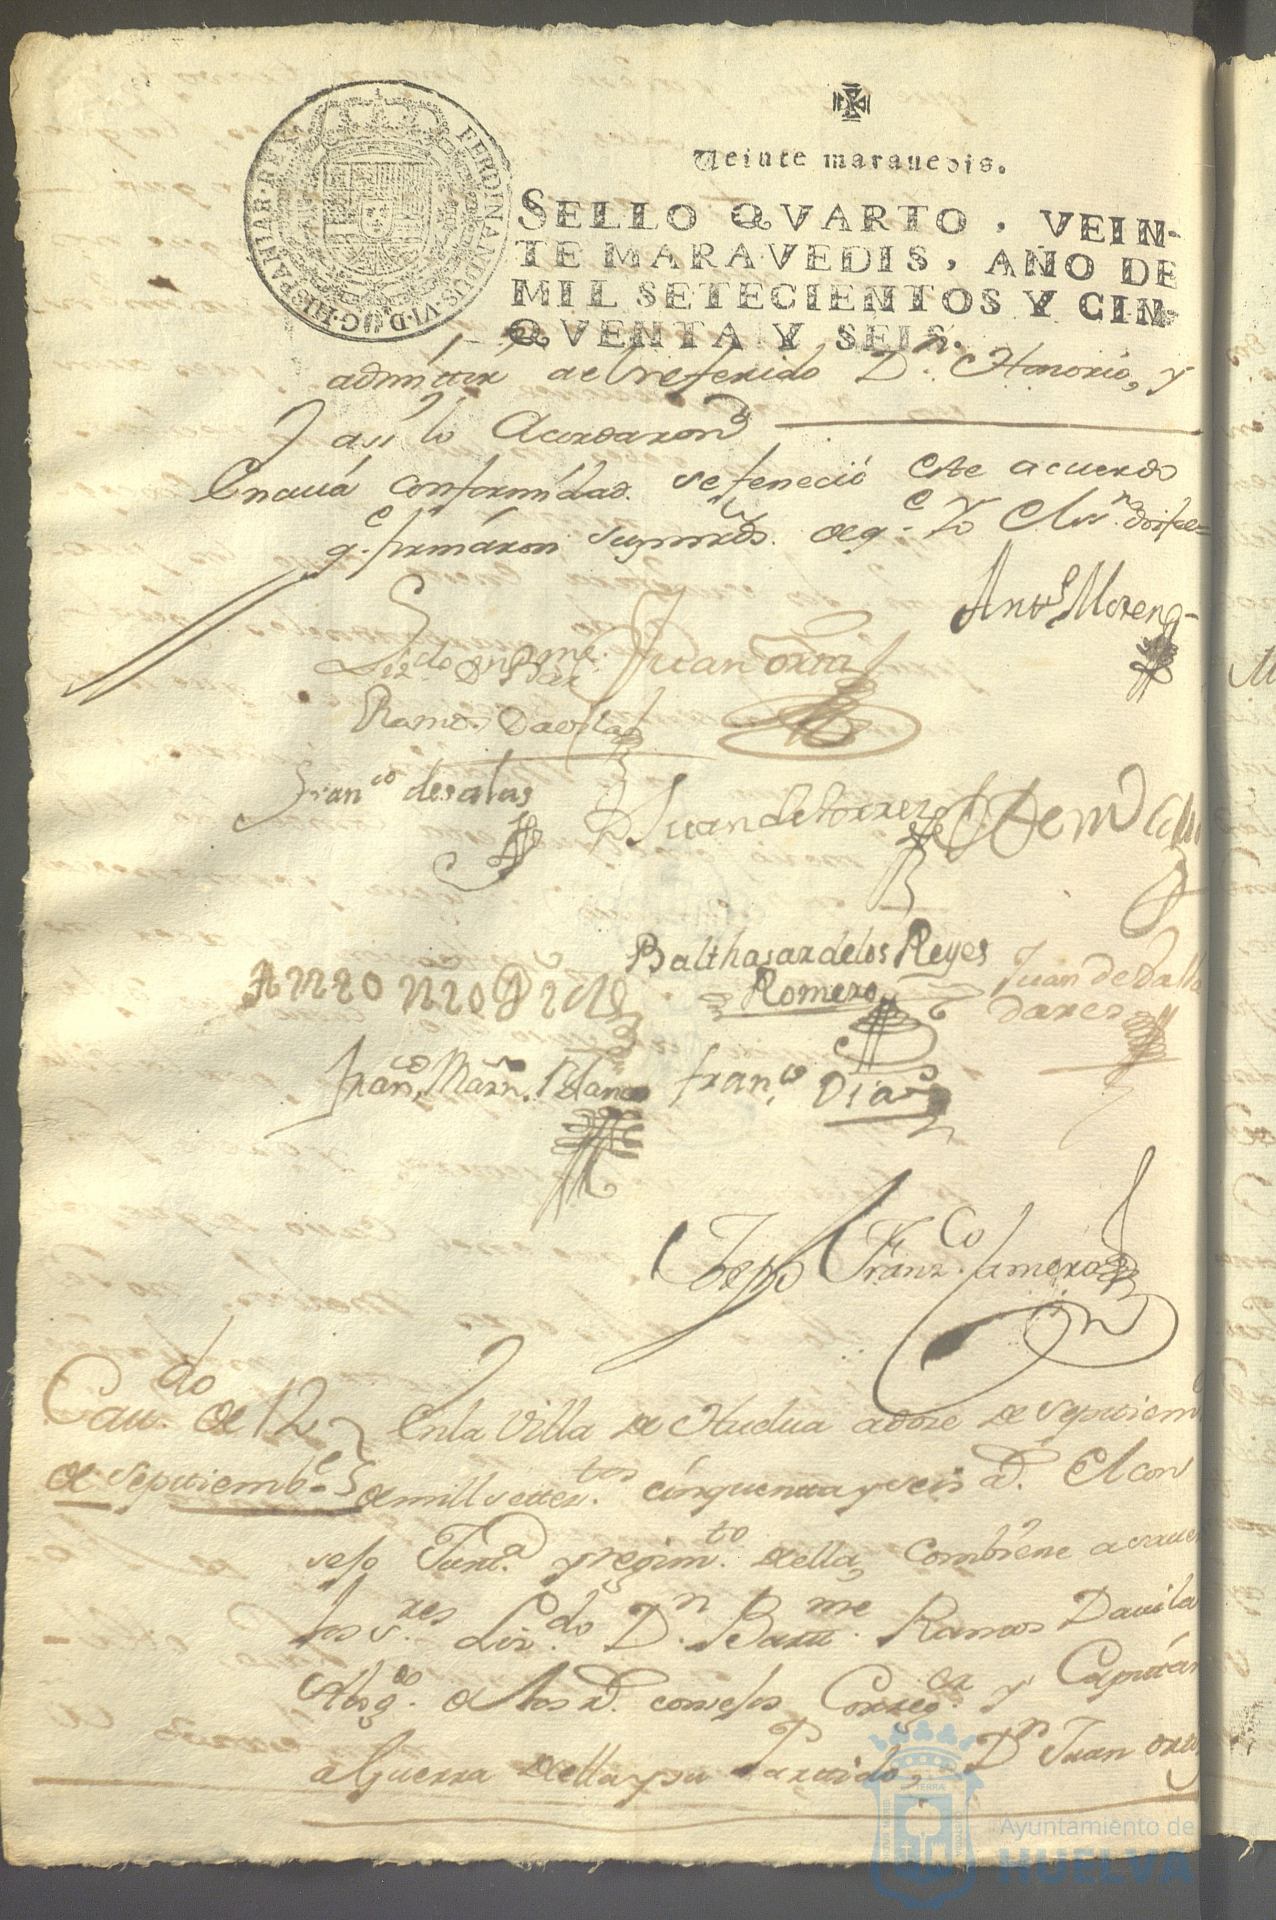 FERDINANDUS·VI·D·G·HISPANIAR·REX
Veinte marauedis.
SELLO QVARTO, VEIN-
TE MARAVEDIS, AÑO DE
MIL SETECIENTOS Y CIN-
QVENTA Y SEIS.
admitir al referido Dn. Honorio, y
Y asi lo Acordaron
En cuia conformidad se feneció este acuerdo
qe. firmáron sus mrds. de qe. Yo el
Anto Moreno
Lizdo. Dn Bme. Juan Orta
Ramos Davila
Franco de salas Juan de torres
Balthasar de los Reyes
Romero
Juan de Valla
dares
Franco. Marn. Blanco franco. Dias
Franzco. Romero
Cavdo. de 12 En la Villa de Huelua a doze de septiem
de septiembe. de mill seteztos. cinquenta y seis ad. El con
sejo Justa. y regimto. de ella, combiene a sauer
los sres. Lizdo. Dn. Barme. Ramos Davila
Abogdo. de los Rs. consejos Corregor. y Capitán
a Guerra de ella y su Partido, Dn Juan
TERRA
Ayuntamiento de
HUELVA